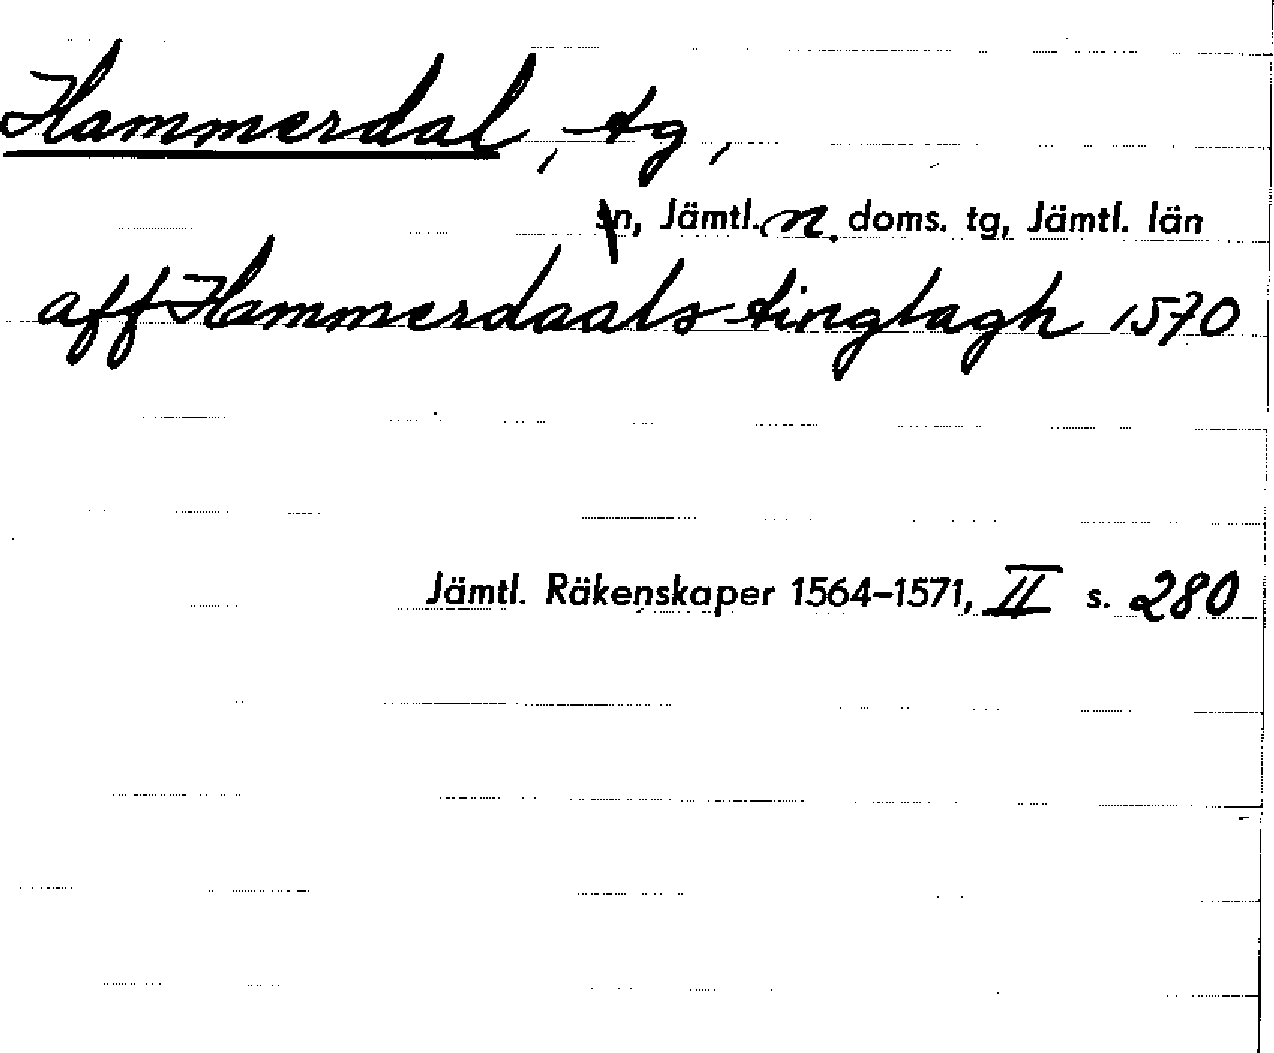 Hammerdal, tg,
sn, Jämtl. n. doms. tg, Jämtl. län
aff Hammerdaals tinglagh 1570
Jämtl. Räkenskaper 1564–1571, II s. 280